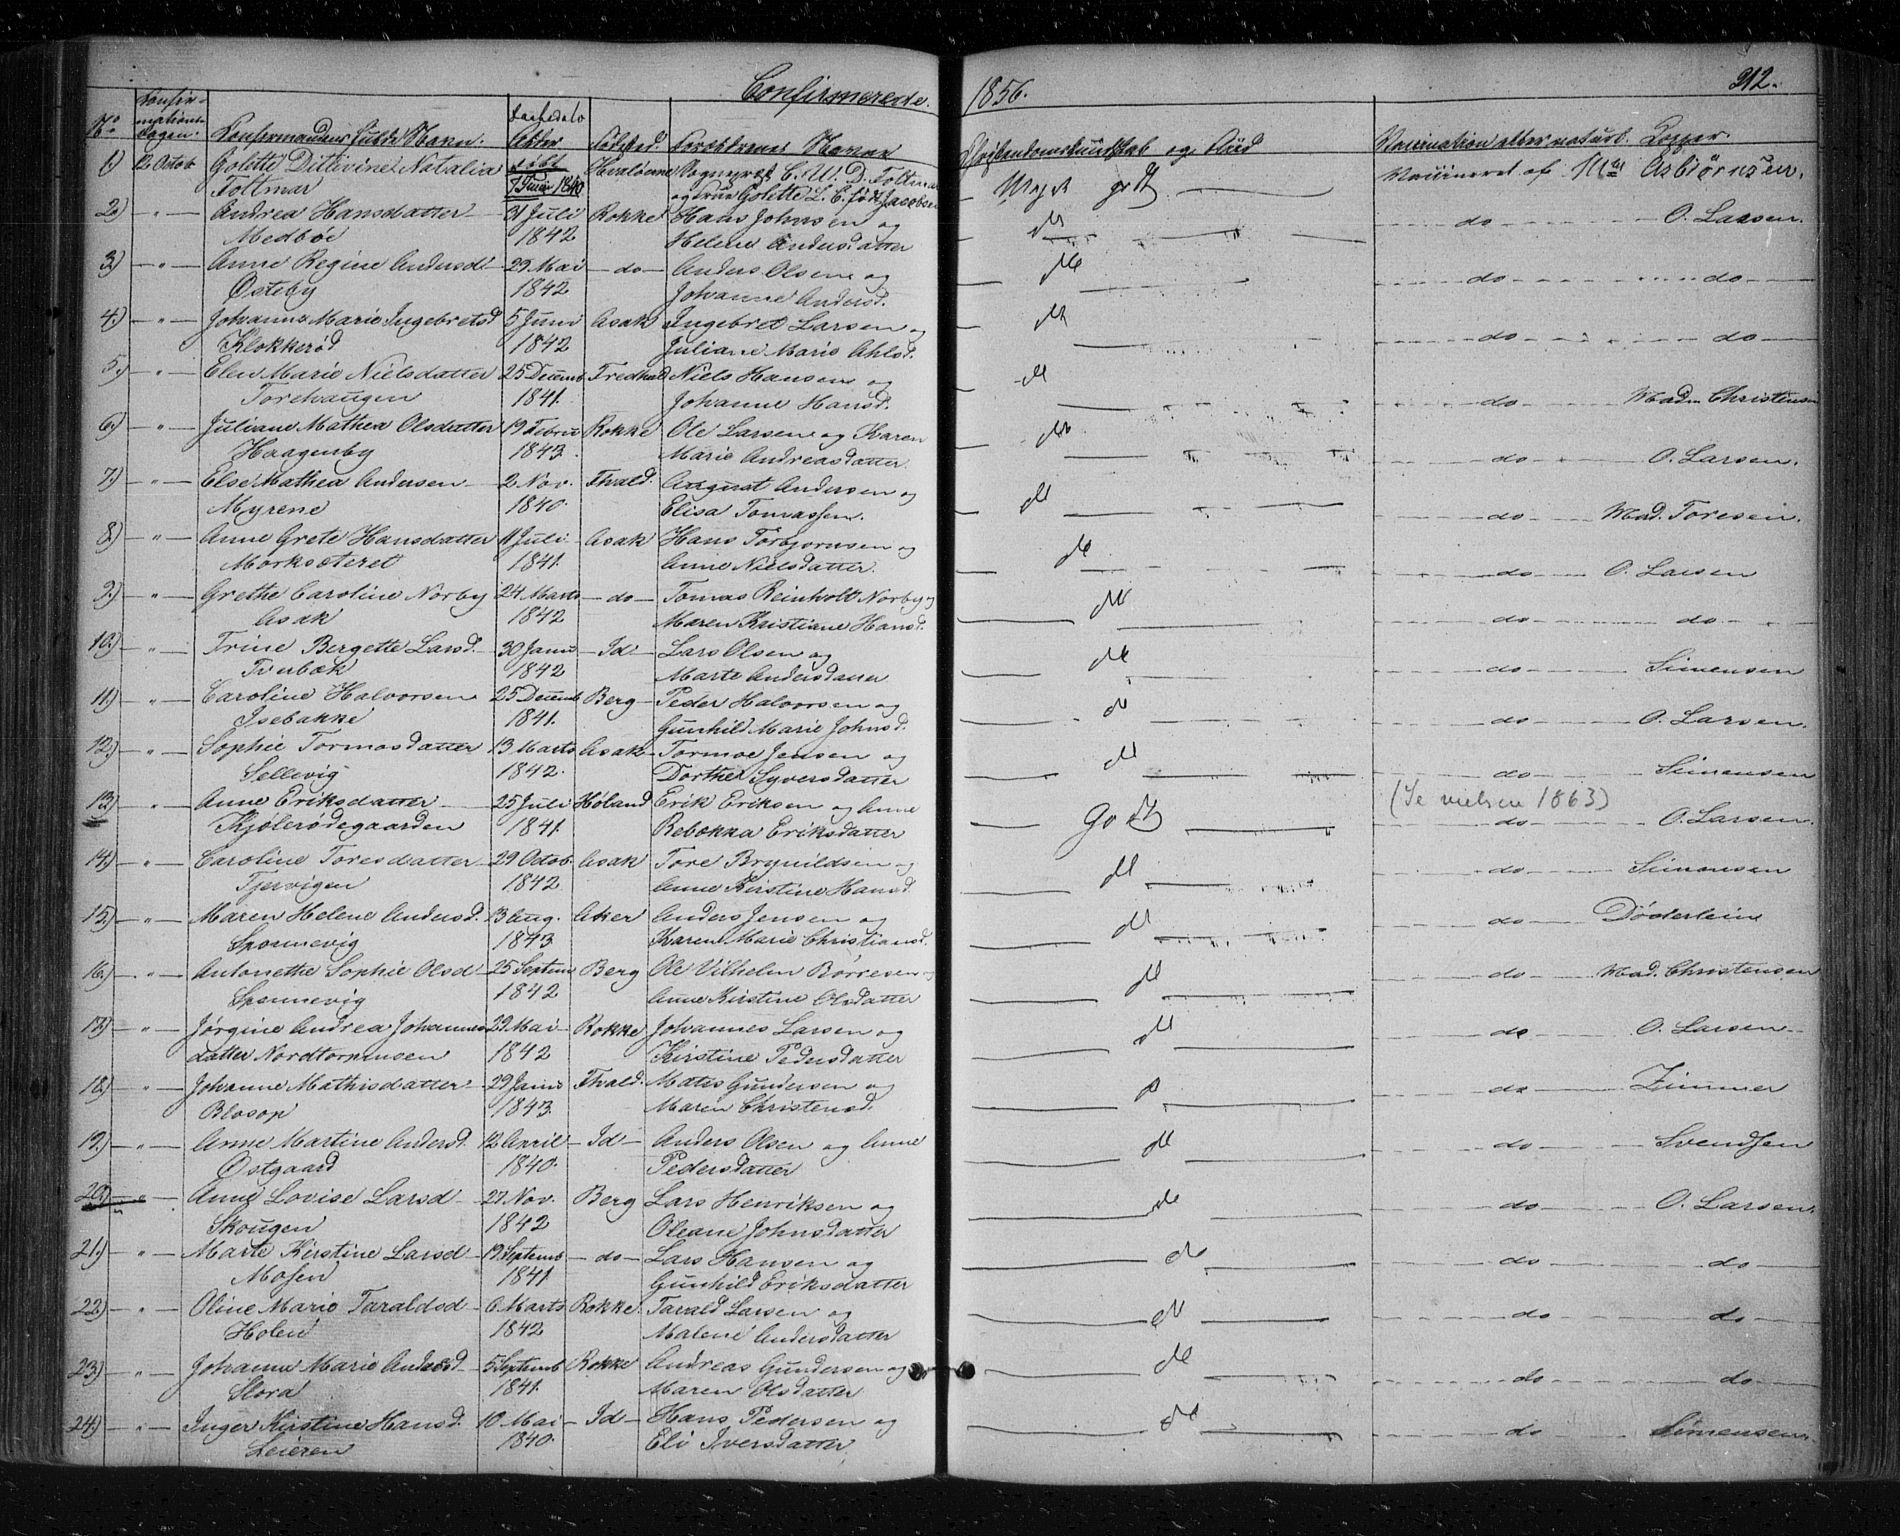 Confirmerede. 1856. 312.
No. Confirmationsdagen. Confirmandens fulde Navn. Alder Fødested. Forældrenes Navne Christendomskundskab og Flid Vaccination eller naturl. Kopper.
1) 12 Octob Golette Ditlevine Natalia Hvaløerne Sognepræst C. W. D. Foltmar Meget godt Vaccineret af Asbiørnsen.
Foltmar 7 Juni 1840 og Frue Golette L. C. født Jacobsen
2) — " — Andrea Hansdatter 31 Juli Rokke Hans Johnsen og do do O. Larsen.
Medbøe 1842 Helene Andersdatter
3) — " — Anne Regine Andersd 29 Mai — do — Anders Olsen og do do do
Østeby 1842 Johanne Andersd.
4) — " — Johanne Marie Ingebretsd 5 Juni Asak Ingebret Larsen og do do do
Klokkerød 1842 Juliane Marie Ahlsd.
5) — " — Elen Marie Nielsdatter 25 Decemb Fredhald Niels Hansen og do do Mad. Christensen
Torehaugen 1841. Johanne Hansd.
6) — " — Juliane Mathea Olsdatter 19 Febru Rokke Ole Larsen og Karen do do O. Larsen.
Haagenby 1843. Marie Andreasdatter.
7) — " — Else Mathea Andersen 2 Nov. Fhald. August Andersen og do do Mad. Toresen.
Myrene 1840. Elisa Tomassen.
8) — " — Anne Grete Hansdatter 11 Juli Asak Hans Torgjornsen og do do O. Larsen
Morksæteret 1841. Anne Nielsdatter.
9) — " — Grethe Caroline Norby 24 Marts — do — Tomas Reinholt Norby og do do do
Asak 1842 Maren Kristiane Hansd.
10) — " — Trine Bergette Larsd. 30 Janu — Id — Lars Olsen og do do Simensen
1842 Marte Andersdatter
11) — " — Caroline Halvorsen 25 Decemb Berg Peder Halvorsen og do do O. Larsen.
Isebakke 1841. Gunhild Marie Johnsd.
12) — " — Sophie Tormosdatter 13 Marts Asak Tormoe Jensen og do do Simensen
Sellevig 1842. Dorthea Syversdatter
13) — " — Anne Eriksdatter 25 Juli Høland Erik Eriksen og Anne Godt (Se vielsen 1863) do O. Larsen.
Kjølerødegaarden 1841. Rebekka Eriksdatter
14) — " — Caroline Toresdatter 29 Octob. Asak Tore Brynildsen og do do Simensen
Tjervigen 1842 Anne Kirstine Hansd.
15) — " — Maren Helene Andersd. 13 Aug. Aker Anders Jensen og do do Døderlein
Sponnevig 1843 Karen Marie Christiansd.
16) — " — Antonette Sophie Olsd 25 Septem Berg Ole Vilhelm Børresen og do do Mad. Christensen
Sponnevig 1842 Anne Kirstine Olsdatter
17) — " — Jørgine Andrea Johannes 29 Mai Rokke Johannes Larsen og do do O. Larsen
datter Nordtorpmosen 1842 Kirstine Pedersdatter
18) — " — Johanne Mathisdatter 29 Janu Fhald. Mates Gundersen og do do Zimmer
Blosop 1843. Maren Christensd.
19) — " — Anne Martine Andersd. 12 April — Id — Anders Olsen og Anne do do Svendsen
Østgaard 1840. Pedersdatter
20) — " — Anne Lovise Larsd 27 Nov. Berg Lars Henriksen og do do O. Larsen.
Skougen 1842 Oleane Johnsdatter
21) — " — Marte Kirstine Larsd 19 Septemb — do — Lars Hansen og do do do
Mosen 1841. Gunhild Eriksdatter
22) — " — Oline Marie Taraldsd 6 Marts Rokke. Tarald Larsen og do do do
Holen 1842 Malene Andersdatter
23) — " — Johanne Marie Andersd 5 Septemb Rokke Andreas Gundersen og do do do
Slora 1841. Maren Olsdatter
24) — " — Inger Kirstine Hansd. 10 Mai — Id — Hans Pedersen og do do Simensen
Leieren 1840. Eli Iversdatter